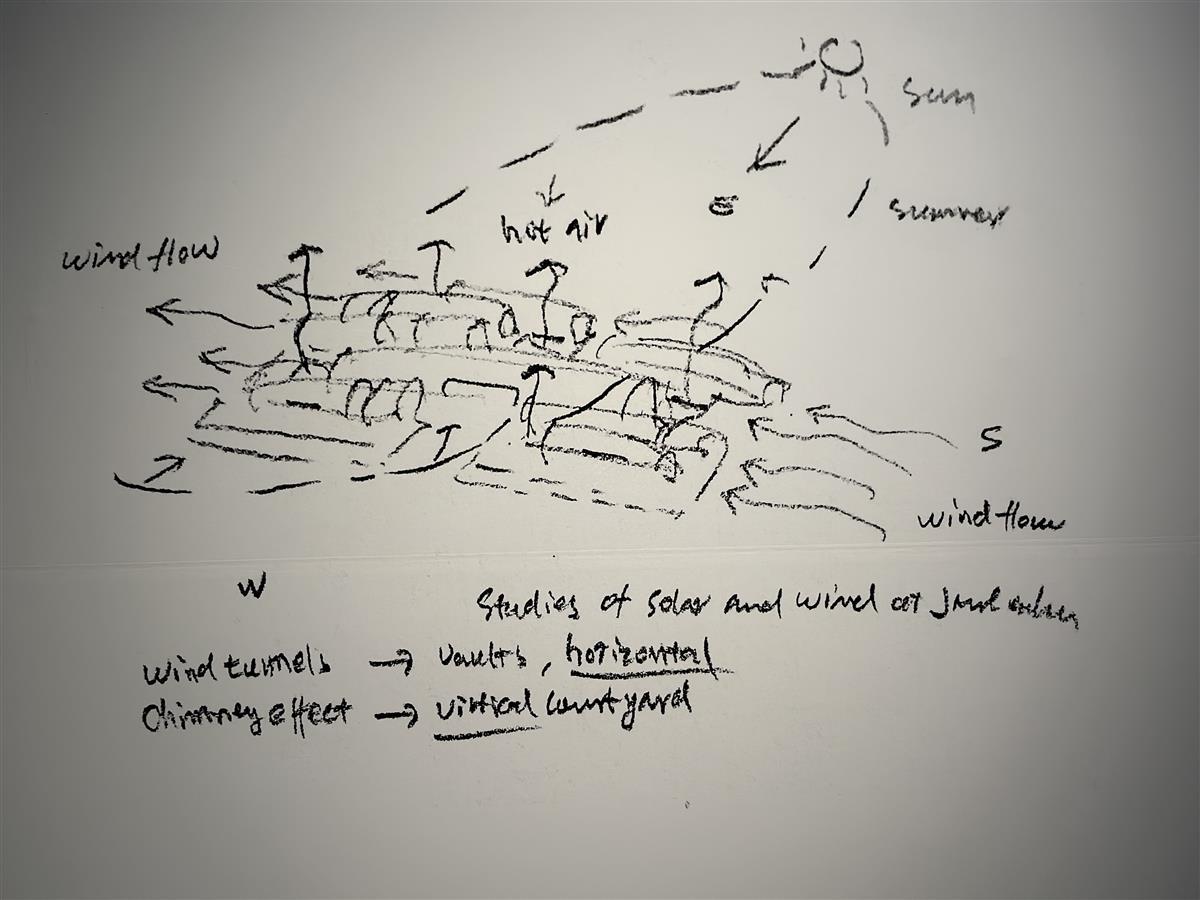 sun
summer
E
hot air
wind flow
S
wind flow
W
Studies of solar and wind at
wind tunnels → vaults, horizontal
Chimney effect → virtical courtyard